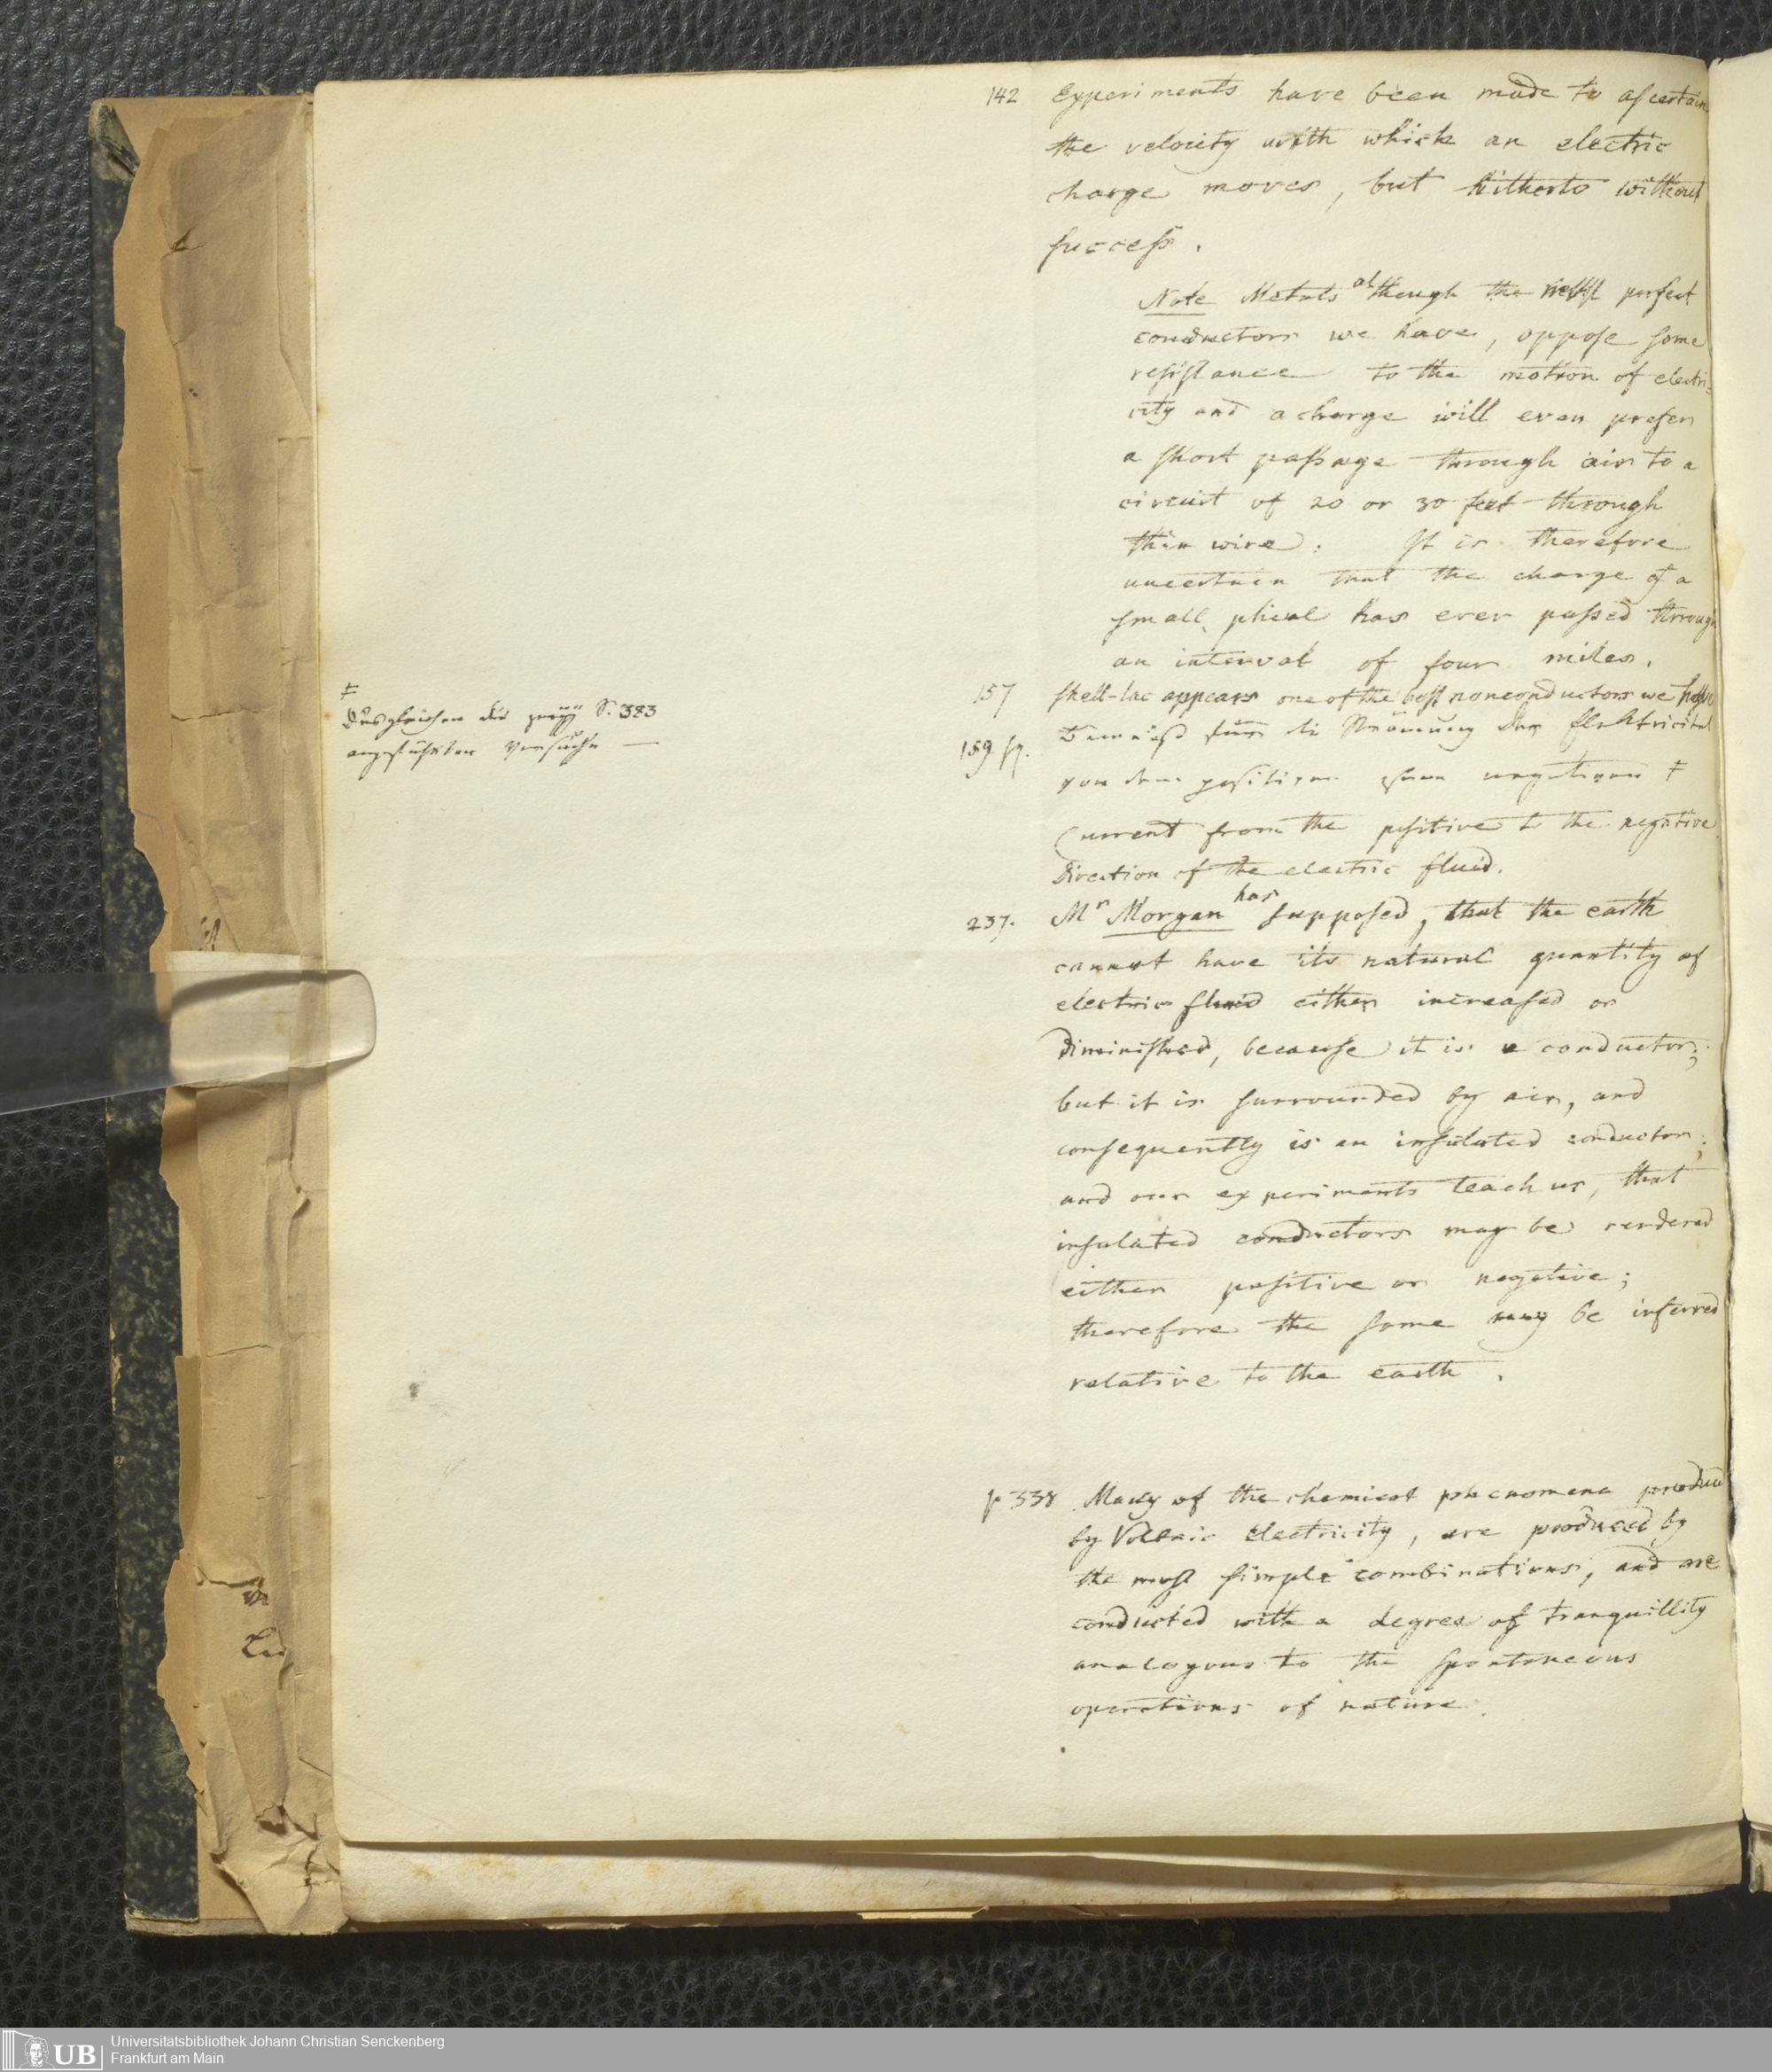 142 Experiments have been made to ascertain
the velocity with which an electric
charge moves, but hitherto without
success.
Note Metals although the most perfect
conductors we have, oppose some
resistance to the motion of electri-
city and a charge will even prefer
a short passage through air to a
circuit of 20 or 30 feet through
thin wire. It is therefore
uncertain that the charge of a
small phial has ever passed through
an interval of four miles.
157 Shell-lac appears one of the best nonconductors we have
159 sq. Beweise für die Strömung der Elektricität
von dem positiven zum negativen ‡
‡
Desgleichen die S. 383
angeführten Versuche —
Current from the positive to the negative
direction of the electric fluid.
237. Mr Morgan has supposed, that the earth
cannot have its natural quantity of
electric fluid either increased or
diminished, because it is a conductor;
but it is surrounded by air, and
consequently is an insulated conductor;
and our experiments teach us, that
insulated conductors may be rendered
either positive or negative;
therefore the same may be inferred
relative to the earth.
p 338 Many of the chemical phenomena produced
by Voltaic Electricity, are produced by
the most simple combinations, and are
conducted with a degree of tranquillity
analogous to the spontaneous
operations of nature.
UB Universitätsbibliothek Johann Christian Senckenberg
Frankfurt am Main